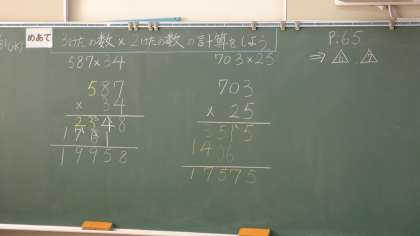 めあて 3けたの数×2けたの数の計算をしよう
587×34
587
× 34
2348
1761
19958
703×25
703
× 25
3515
1406
17575
P.65
⇒ △1 △2